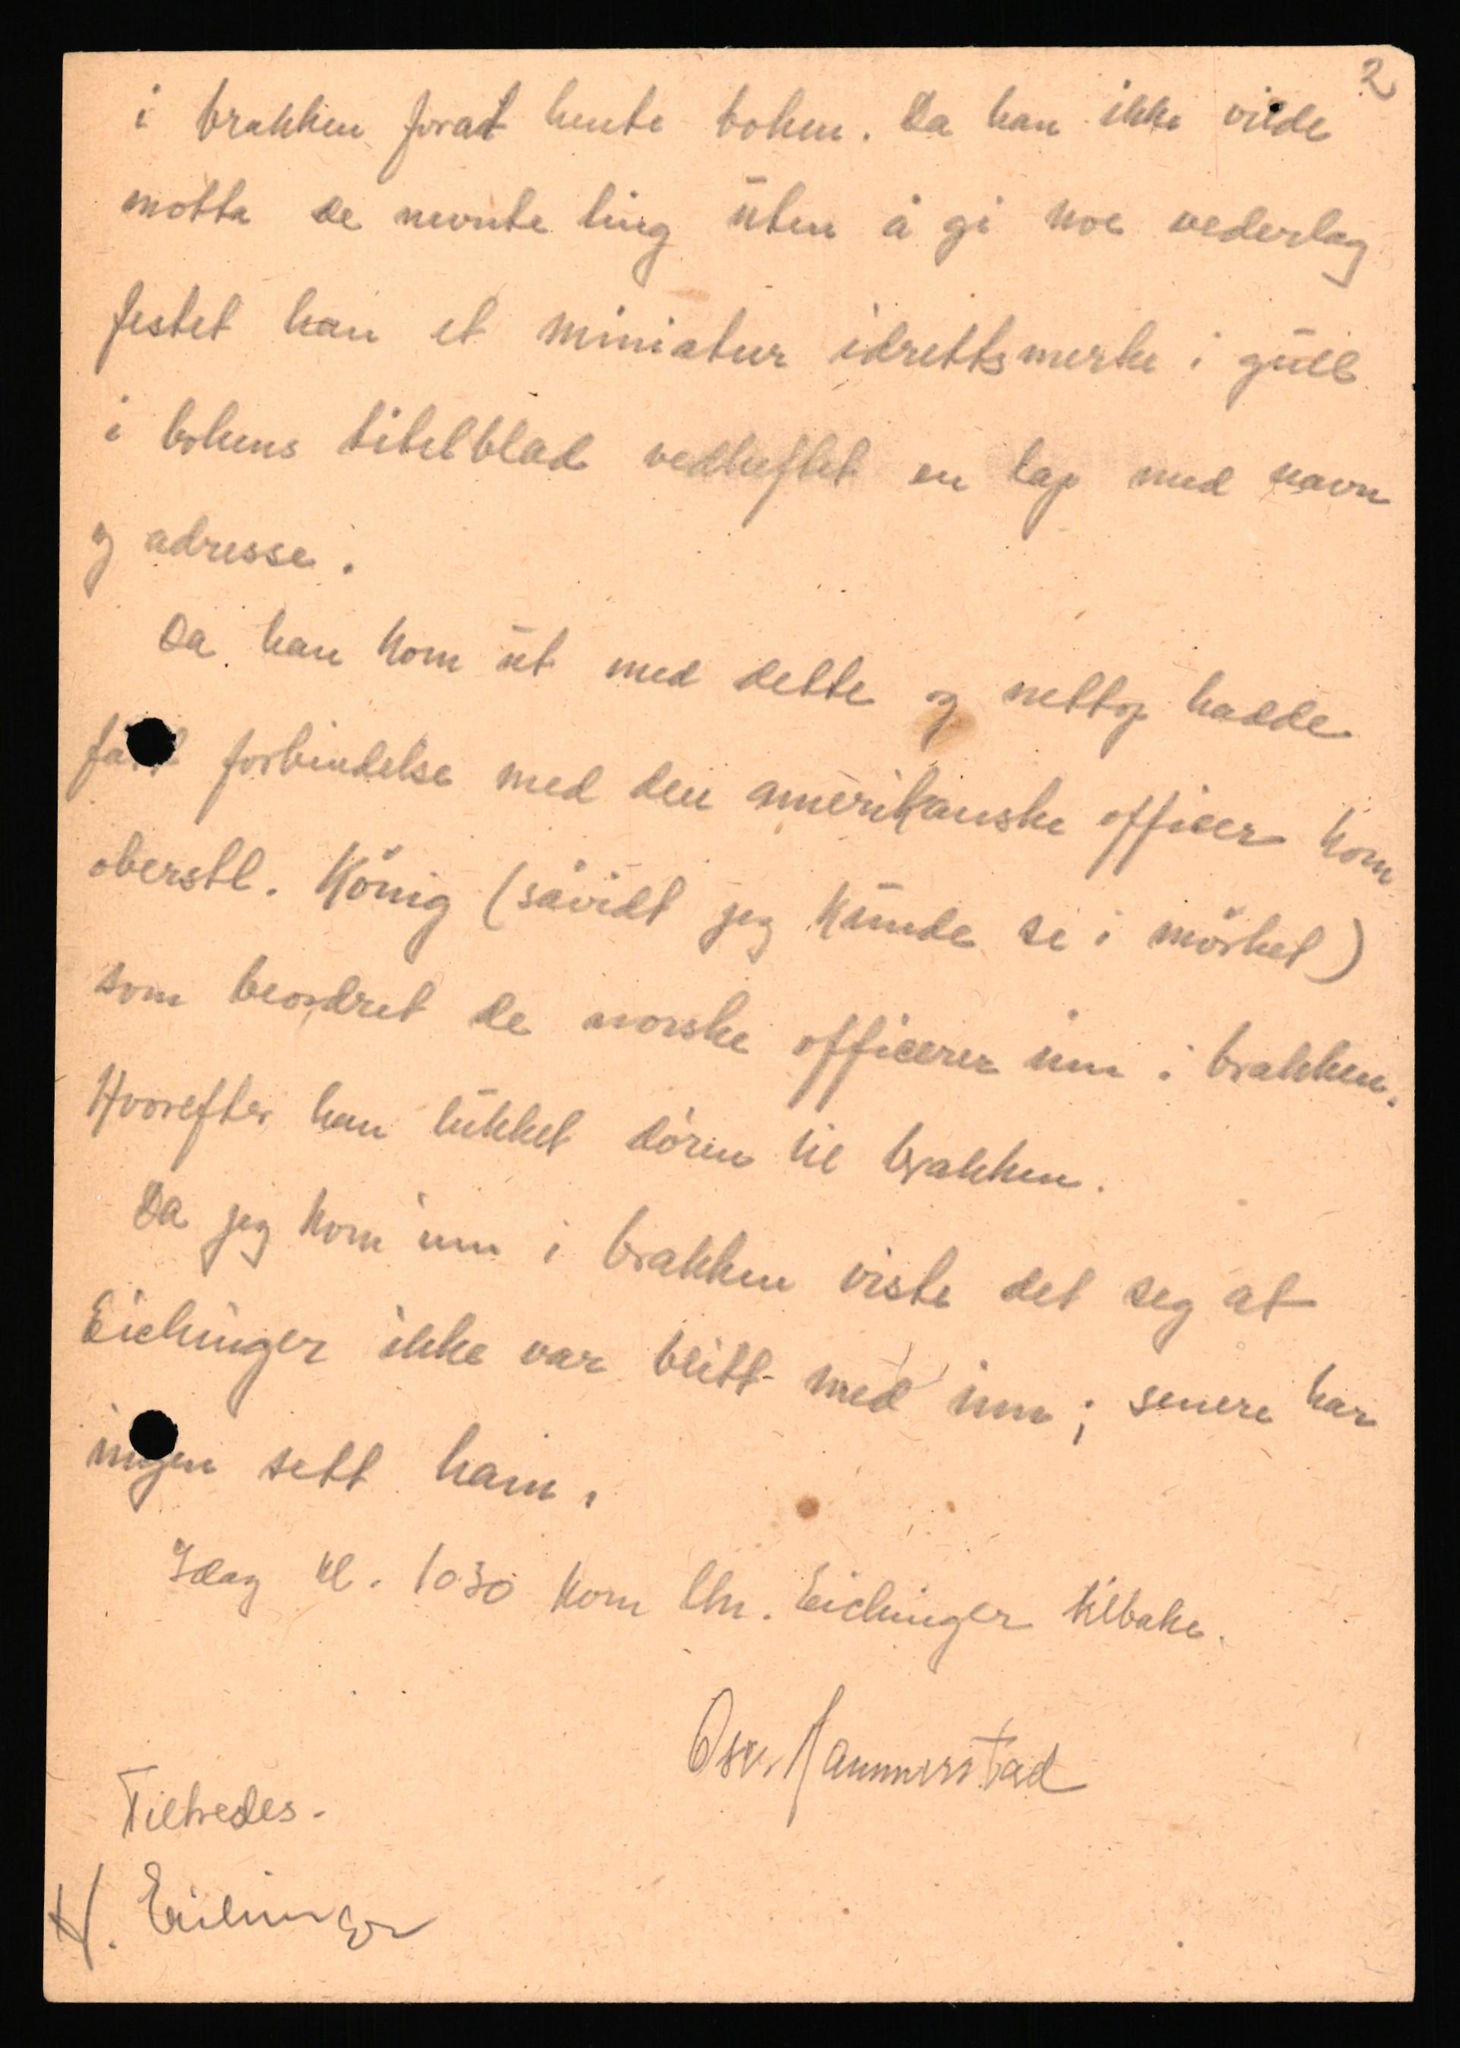 2
i brakken forat hente boken. Da han ikke vilde
motta de nevnte ting uten å gi noe vederlag
festet han et miniatur idrettsmerke i gull
i bokens titelblad vedheftet en lap med navn
og adresse.
Da han kom ut med dette og nettop hadde
fått forbindelse med den amerikanske officer kom
oberstl. König (såvidt jeg kunde se i mörket)
som beordret de norske officerer inn i brakken.
Hvorefter han lukket døren til brakken.
Da jeg kom inn i brakken viste det seg at
Eichinger ikke var blitt med inn; senere har
ingen sett ham.
Idag kl. 1030 kom ltn. Eichinger tilbake.
Osv. Hammerstad
Tiltredes.
H. Eichinger